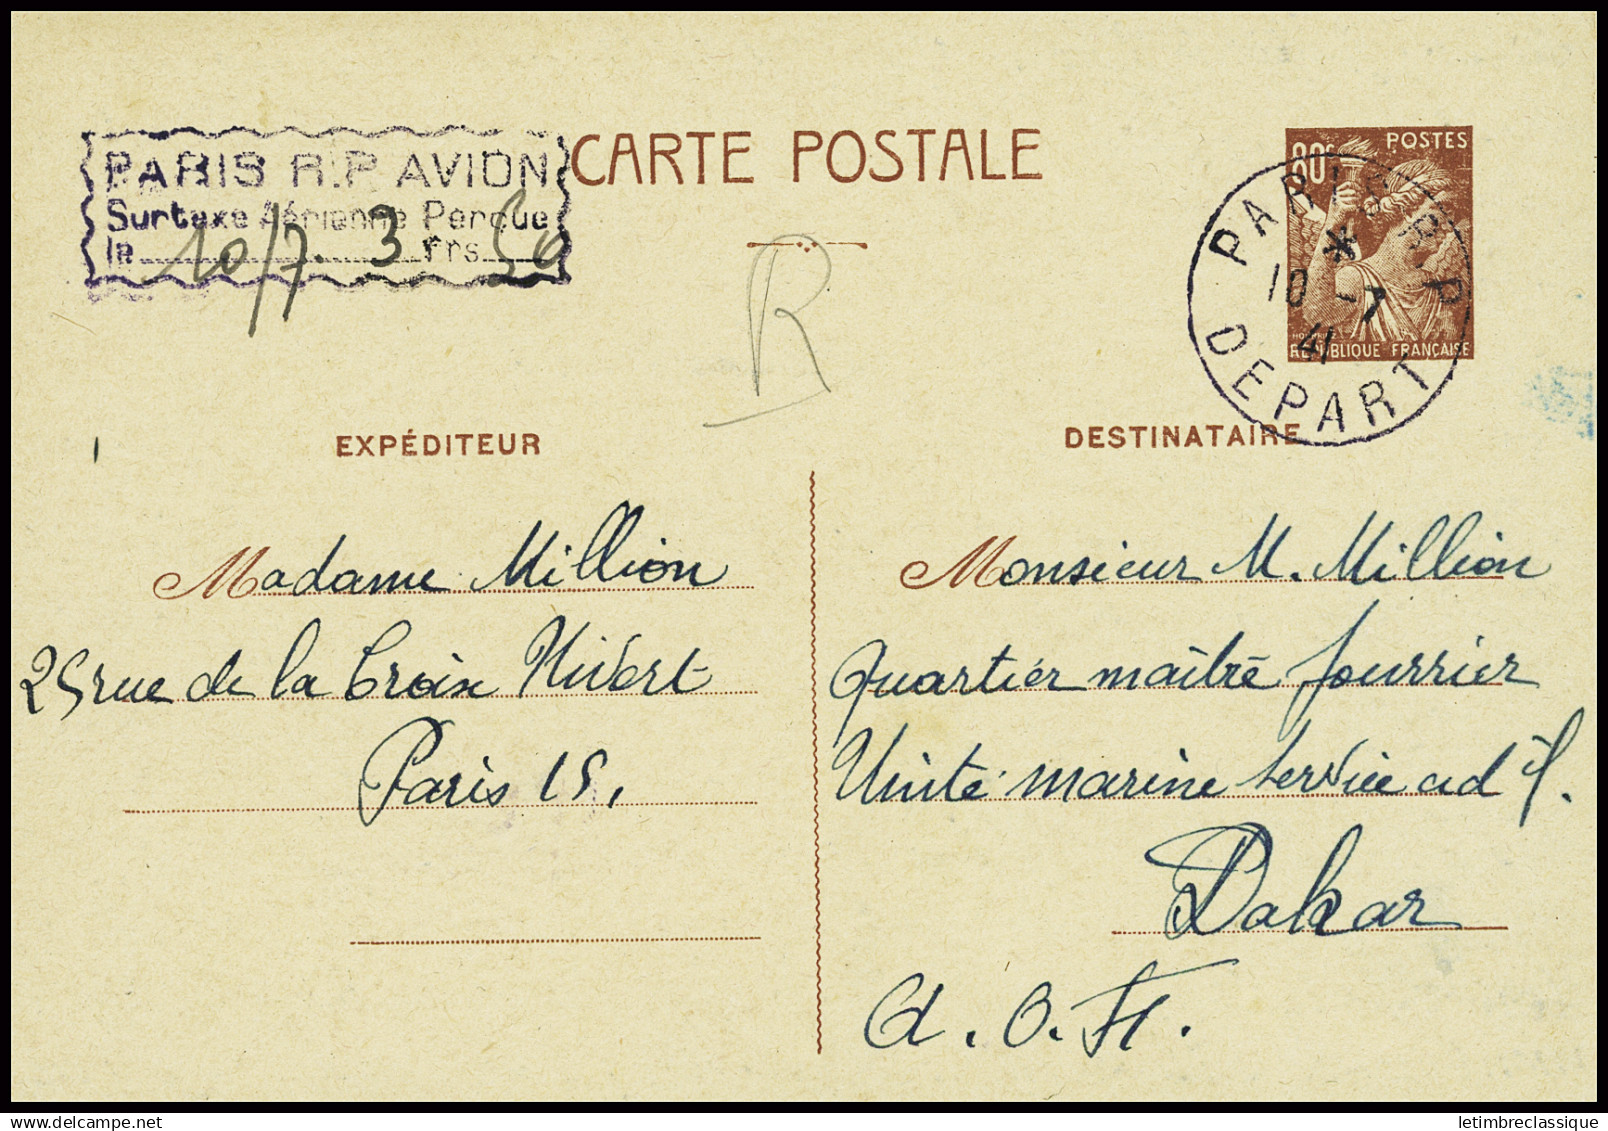 CARTE POSTALE
PARIS R.P. AVION
Surtaxe Aérienne Perçue
le 10/7. 3 frs 50
R
80c POSTES
REPUBLIQUE FRANÇAISE
PARIS R.P
*
10 -7
41
DEPART
EXPÉDITEUR
Madame Million
25 rue de la Croix Nivert
Paris 15,
DESTINATAIRE
Monsieur M. Million
Quartier maître fourrier
Unité marine Service ad f.
Dakar
A. O. F.
letimbreclassique